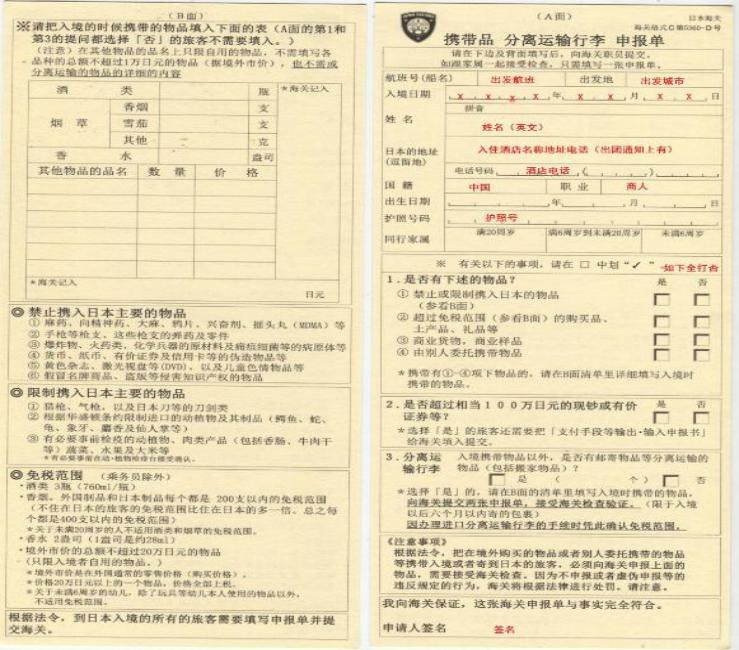 (B面)
※请把入境的时候携带的物品填入下面的表（A面的第1和
第3的提问都选择「否」的旅客不需要填入。）
（注意）在其他物品的品名上只限自用的物品，不需填写各
品种的总额不超过1万日元的物品（据境外市价），也不需或
分离运输的物品的详细的内容
酒 类 瓶 *海关记入
烟 草 香烟 支
雪茄 支
其他 克
香 水 盎司
其他物品的品名 数 量 价 格
*海关记入
日元
◎ 禁止携入日本主要的物品
① 麻药、向精神药、大麻、鸦片、兴奋剂、摇头丸（MDMA）等
② 手枪等枪支、这些枪支的弹药及零件
③ 爆炸物、火药类、化学兵器的原材料及病原体等
④ 货币、纸币、有价证券及信用卡等的伪造物品等
⑤ 黄色杂志、激光视盘等(DVD)、以及儿童色情物品等
⑥ 假冒名牌商品、盗版等侵害知识产权的物品
◎ 限制携入日本主要的物品
① 猎枪、气枪、以及日本刀等的刀剑类
② 根据华盛顿条约限制进口的动植物及其制品（鳄鱼、蛇、
龟、象牙、麝香及仙人掌等）
③ 有必要事前检疫的动植物、肉类产品（包括香肠、牛肉干
等）蔬菜、水果及大米等
*有必要事前在动·植物检疫台接受确认。
◎ 免税范围 （乘务员除外）
·酒类 3瓶（760ml/瓶）
·香烟。外国制品和日本制品每个都是 200支以内的免税范围
（不住在日本的旅客的免税范围比住在日本的多一倍。总之每
个都是400支以内的免税范围）
*关于未满20周岁的人不适用酒类和烟草的免税范围。
·香水 2盎司（1盎司是约28ml）
·境外市价的总额不超过20万日元的物品
（只限入境者自用的物品。）
*境外市价是在外国通常的零售价格（购买价格）。
*价格20万日元以上的一个物品，价格全部上税。
*关于未满6周岁的幼儿，除了玩具等幼儿本人使用的物品以外，
不适用免税范围。
根据法令，到日本入境的所有的旅客需要填写申报单并提
交海关。
(A面)
日本海关
海关格式C第5360-D号
携带品 分离运输行李 申报单
请在下边及背面填写后，向海关职员提交。
如跟家属一起接受检查，只需填写一张申报单。
航班号(船名) 出发航班 出发地 出发城市
入境日期 x x x x 年 x x 月 x x 日
姓 名 拼音
姓名（英文）
日本的地址
（逗留地） 入住酒店名称地址电话（出团通知上有）
电话号码 酒店电话 ( )
国 籍 中国 职 业 商人
出生日期 年 月 日
护照号码 护照号
同行家属 满20周岁 满6周岁到未满20周岁 未满6周岁
※ 有关以下的事项，请在 □ 中划“✓” -如下全打否
1.是否有下述的物品？ 是 否
① 禁止或限制携入日本的物品
（参看B面）
② 超过免税范围（参看B面）的购买品、
土产品、礼品等
③ 商业货物，商业样品
④ 由别人委托携带物品
*携带有①-④项下物品的，请在B面清单里详细填写入境时
携带的物品。
2.是否超过相当１００万日元的现钞或有价
证券等？ 是 否
*选择「是」的旅客还需要把「支付手段等输出·输入申报书」
给海关填入提交。
3.分离运
输行李 入境携带物品以外，是否有邮寄物品等分离运输的
物品（包括搬家物品）？
□ 是 （ 个） □ 否
*选择「是」的，请在B面的清单里填写入境时携带的物品，
向海关提交两张申报单，接受海关检查验证。（限于入境
以后六个月以内寄的包裹）
因办理进口分离运输行李的手续时凭此确认免税范围。
《注意事项》
根据法令，把在境外购买的物品或者别人委托携带的物品
等携带入境或者寄到日本的旅客，必须向海关申报上面的
物品，需要接受海关检查。因为不申报或者虚伪申报等的
违反规定的行为，海关将根据法律进行处罚，请注意。
我向海关保证，这张海关申报单与事实完全符合。
申请人签名 签名